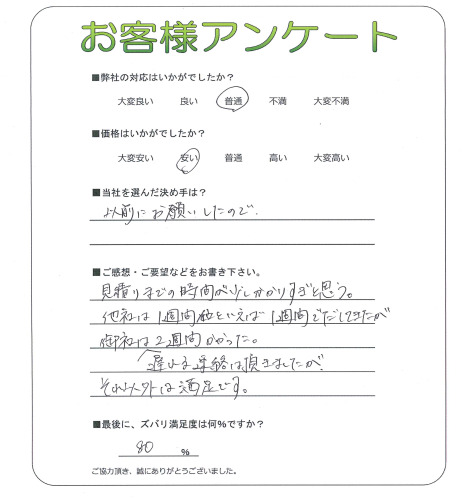 お客様アンケート
■弊社の対応はいかがでしたか?
大変良い 良い 普通 不満 大変不満
■価格はいかがでしたか?
大変安い 安い 普通 高い 大変高い
■当社を選んだ決め手は?
以前にお願いしたので.
■ご感想・ご要望などをお書き下さい。
見積りまでの時間が少しかかりすぎと思う。
他社は1週間位といえば1週間でだしてきたが
御社は2週間かかった。
遅れる連絡は頂きましたが
それ以外は満足です。
■最後に、ズバリ満足度は何%ですか?
80 %
ご協力頂き、誠にありがとうございました。